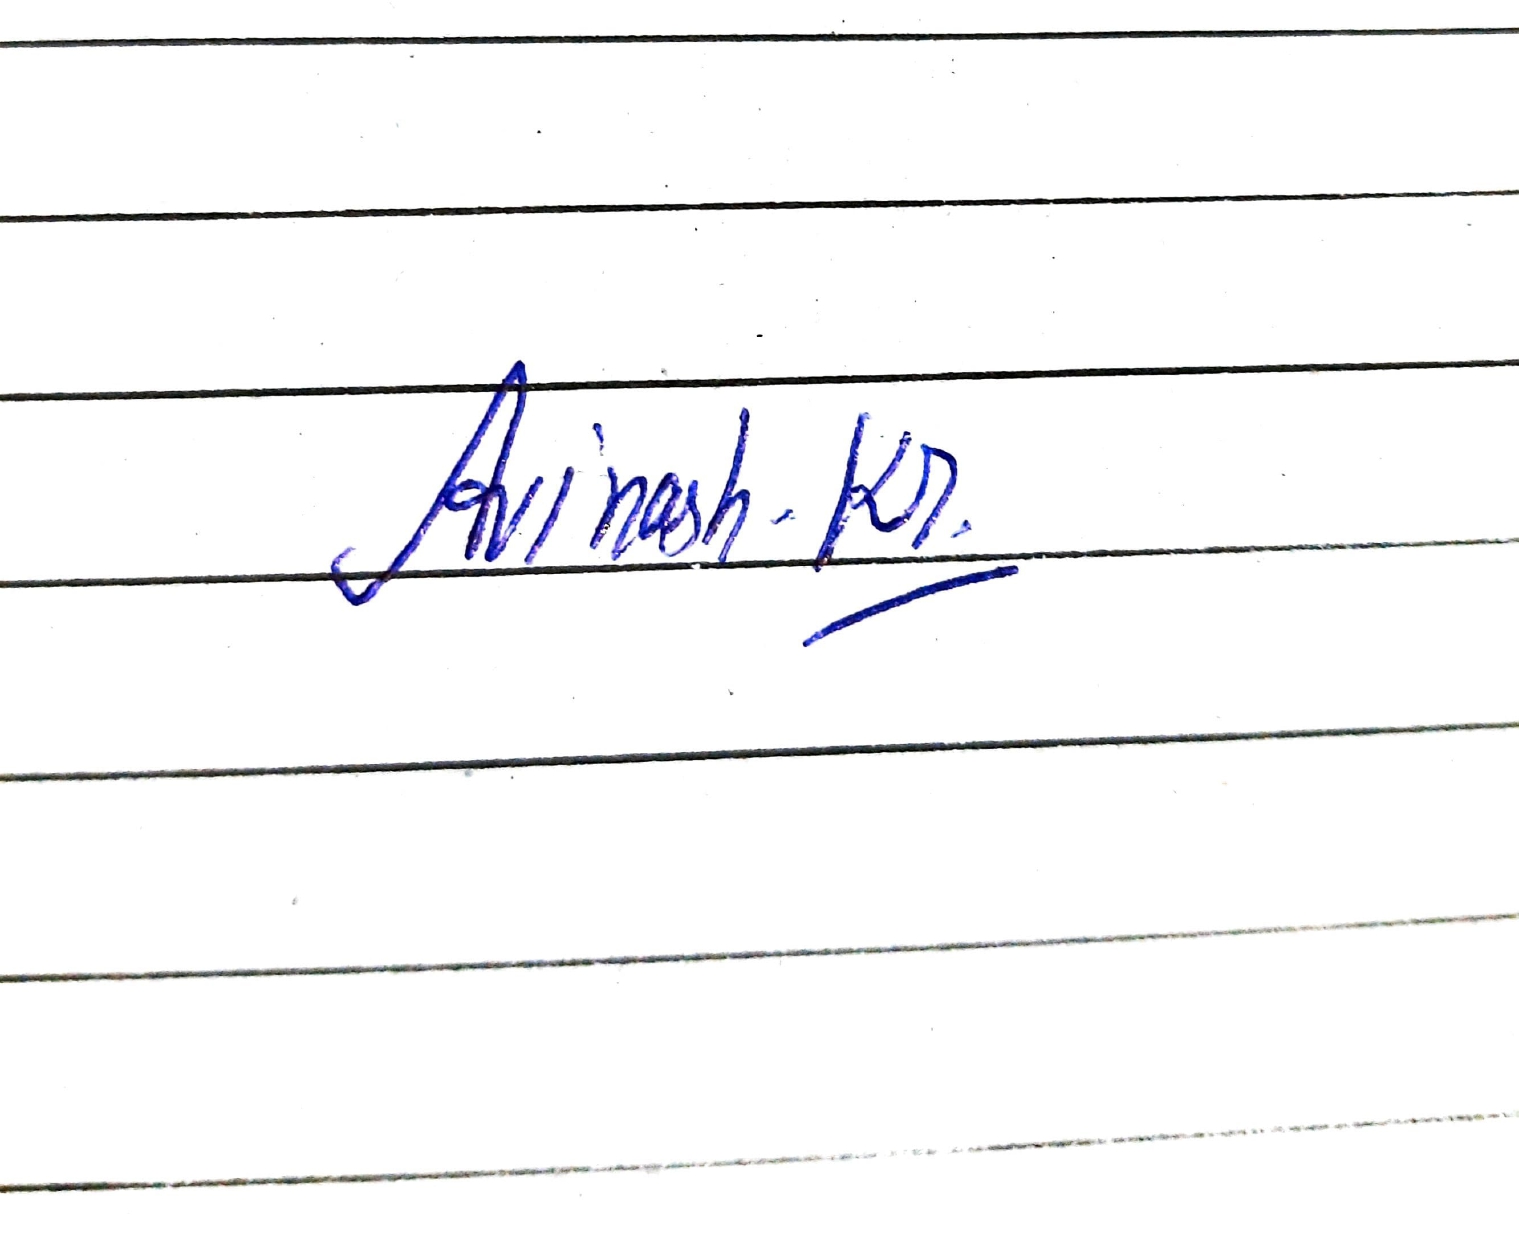 Avinash. Kr.